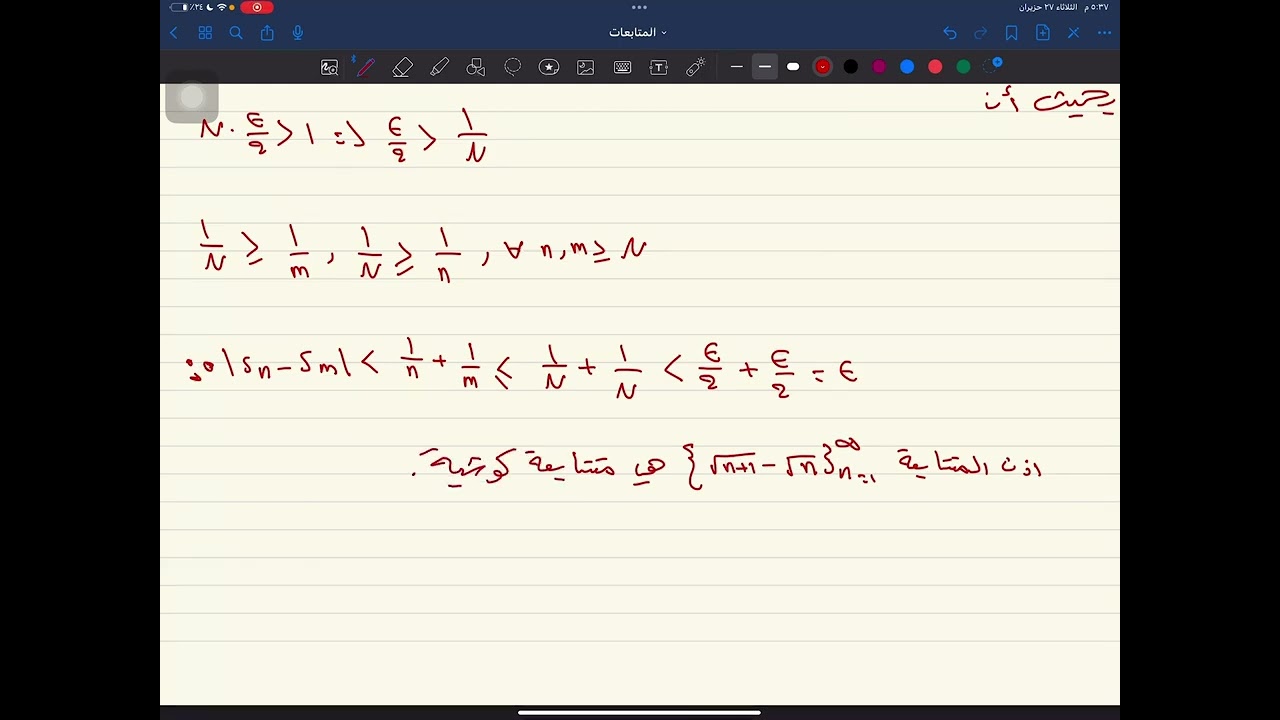 ٥:٣٧ م الثلاثاء ٢٧ حزيران
٪٢٤
المتابعات
بحيث أن
N. ε/2 > 1 => ε/2 > 1/N
1/N ≥ 1/m , 1/N ≥ 1/n , ∀ n,m ≥ N
|Sn - Sm| < 1/n + 1/m ≤ 1/N + 1/N < ε/2 + ε/2 = ε
اذن المتتابعة {√n+1 - √n}∞n=1 هي متتابعة كوشية.